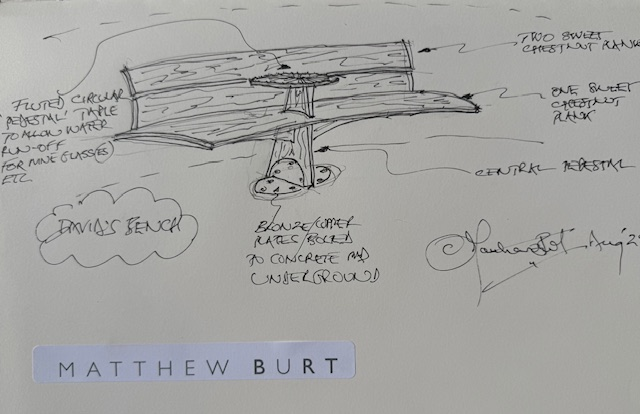 TWO SWEET
CHESTNUT PLANK
FLUTED CIRCULAR
'PEDESTAL' TABLE
TO ALLOW WATER
RUN-OFF
FOR WINE GLASSES
ETC
ONE SWEET
CHESTNUT
PLANK
CENTRAL PEDESTAL
DAVID'S BENCH
BRONZE/COPPER
PLATES/BOLTED
TO CONCRETE PAD
UNDERGROUND
MATTHEW BURT